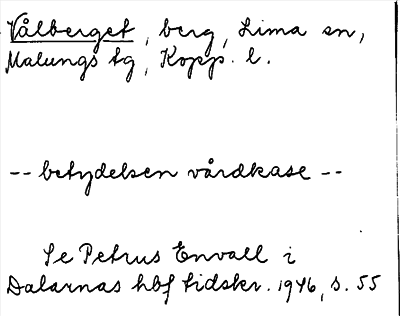 Vålberget, berg, Lima sn,
Malungs tg, Kopp. l.
-- betydelsen vårdkase --
Se Petrus Envall i
Dalarnas hbf tidskr. 1946, s. 55